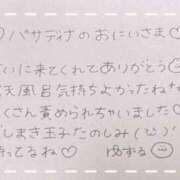 ♡パサディナのおにいさま♡
いに来てくれてありがとう
天風呂気持ちよかったね
くさん責められちゃいました♡
しまき王子たのしみ(¨)♡
待ってるね♡ ゆずる